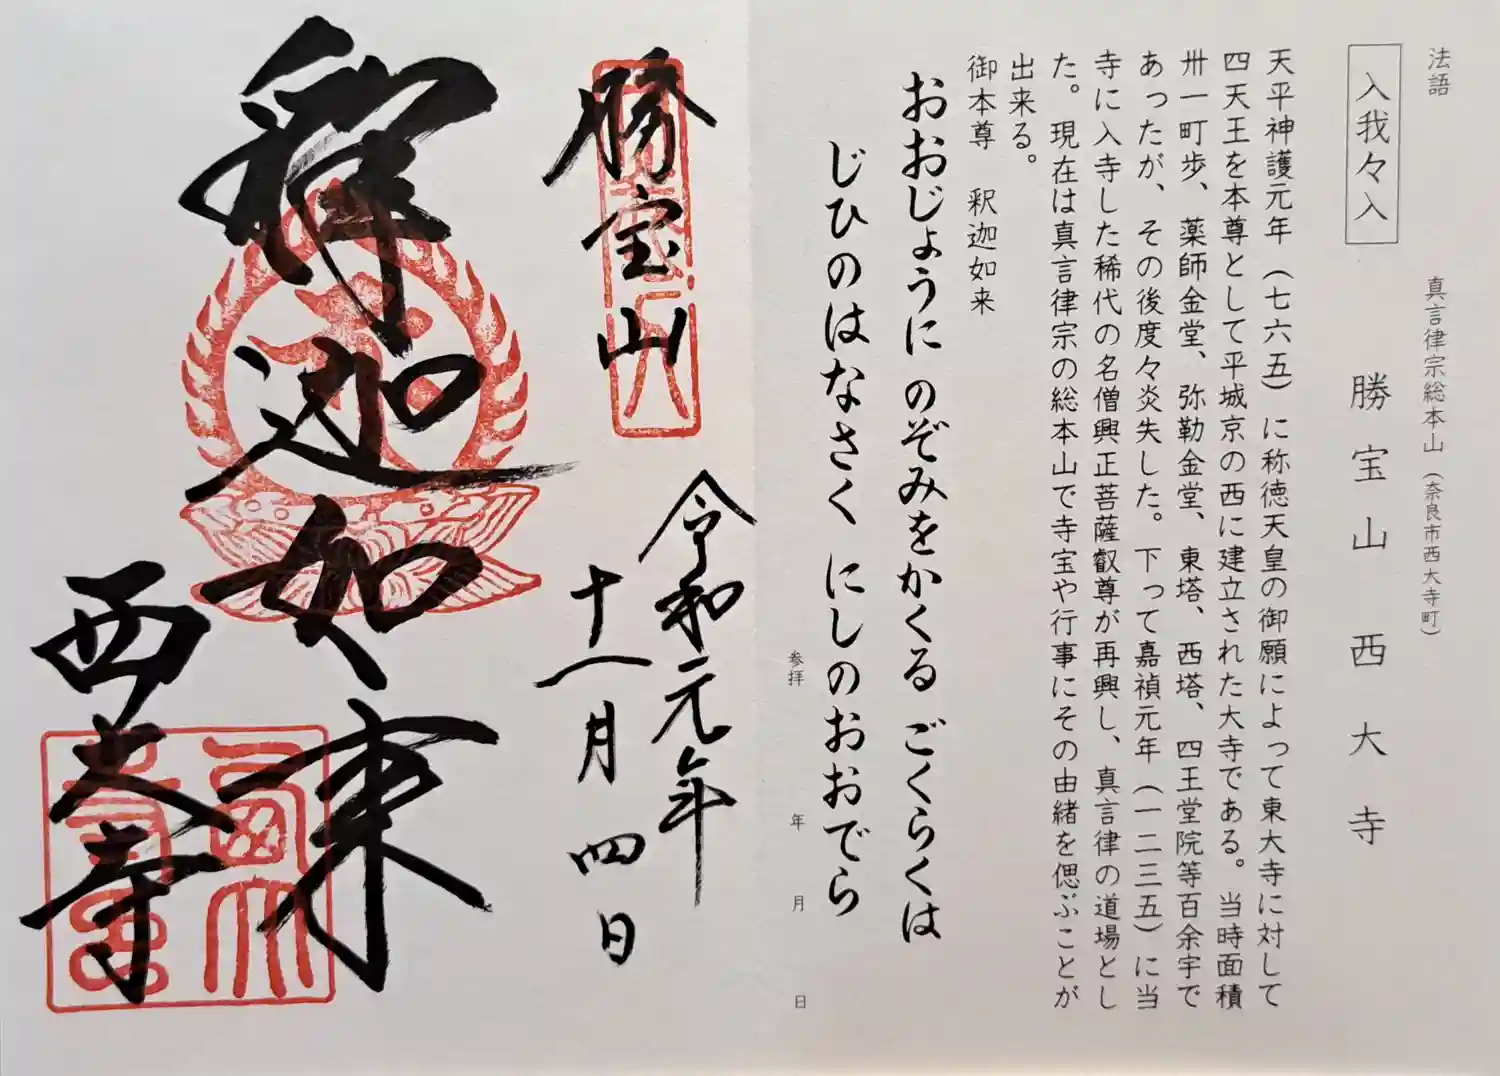 法語
入我々入
真言律宗総本山（奈良市西大寺町）
勝宝山西大寺
天平神護元年（七六五）に称徳天皇の御願によって東大寺に対して
四天王を本尊として平城京の西に建立された大寺である。当時面積
卅一町歩、薬師金堂、弥勒金堂、東塔、西塔、四王堂院等百余宇で
あったが、その後度々炎失した。下って嘉禎元年（一二三五）に当
寺に入寺した稀代の名僧興正菩薩叡尊が再興し、真言律の道場とし
た。現在は真言律宗の総本山で寺宝や行事にその由緒を偲ぶことが
出来る。
御本尊　釈迦如来
おおじょうに のぞみをかくる ごくらくは
じひのはなさく にしのおおでら
参拝　年　月　日
勝宝山
令和元年
十一月四日
釋迦如来
西大寺